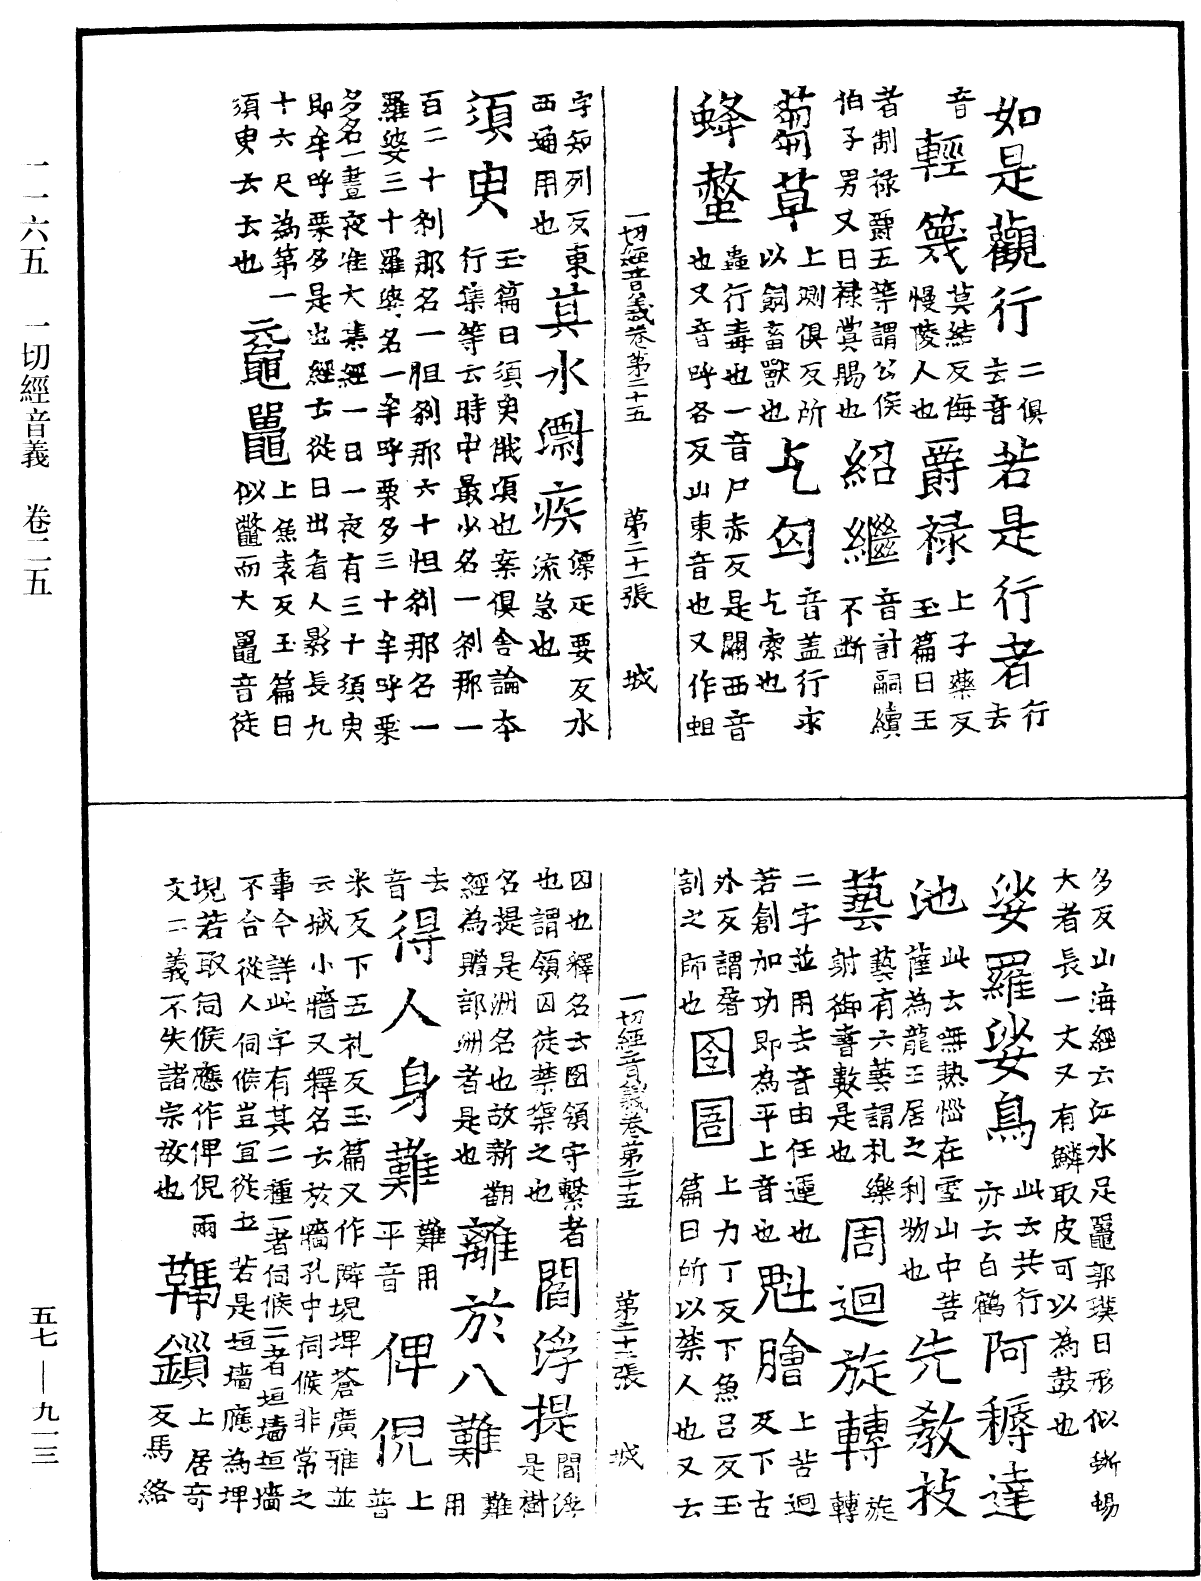 如是觀行二俱去音若是行者行去
音輕篾莫結反侮慢陵人也爵祿上子藥反玉篇曰王
者制祿爵五等謂公侯伯子男又曰祿賞賜也紹繼音計嗣續不斷
蒭草上測俱反所以飼畜獸也乞匃音蓋行求乞索也
蜂螫蟲行毒也一音尸赤反是關西音也又音呼各反山東音也又作蛆
一切經音義卷第二十五　第二十一張　城
字知列反東西通用也其水漂疾漂疋要反水流急也
須臾玉篇曰須臾俄頃也案俱舍論本行集等云時中最少名一剎那一
百二十剎那名一怛剎那六十怛剎那名一
羅婆三十羅婆名一牟呼栗多三十牟呼栗
多名一晝夜准大集經一日一夜有三十須臾
即牟呼栗多是也經云從日出看人影長九
十六尺為第一須臾云云也黿鼉上焦袁反玉篇曰似鼈而大鼉音徒
多反山海經云江水足鼉郭璞曰形似蜥蜴
大者長一丈又有鱗取皮可以為鼓也
娑羅娑鳥此云共行亦云白鶴阿耨達
池此云無熱惱在雪山中菩薩為龍王居之利物也先教技
藝藝有六藝謂礼樂射御書數是也周迴旋轉旋轉
二字並用去音由任運也若創加功即為平上音也魁膾上苦迴反下古
外反謂屠割之師也囹圄上力丁反下魚呂反玉篇曰所以禁人也又云
一切經音義卷第二十五　第二十二張　城
囚也釋名云囹領守繫者也謂領囚徒禁禦之也閻浮提閻浮是樹
名提是洲名也故新翻經為贍部洲者是也離於八難難用
去音得人身難難用平音俾倪上普
米反下五礼反玉篇又作睥睨埤蒼廣雅並
云城小牆又釋名云於牆孔中伺候非常之
事今詳此字有其二種一者伺候二者垣墻垣墻
不合從人伺候豈宜從土若是垣墻應為埤
堄若取伺候應作俾倪兩文二義不失諸宗故也羈鎖上居奇反馬絡
一一六五　一切經音義　卷二五
五七—九一三